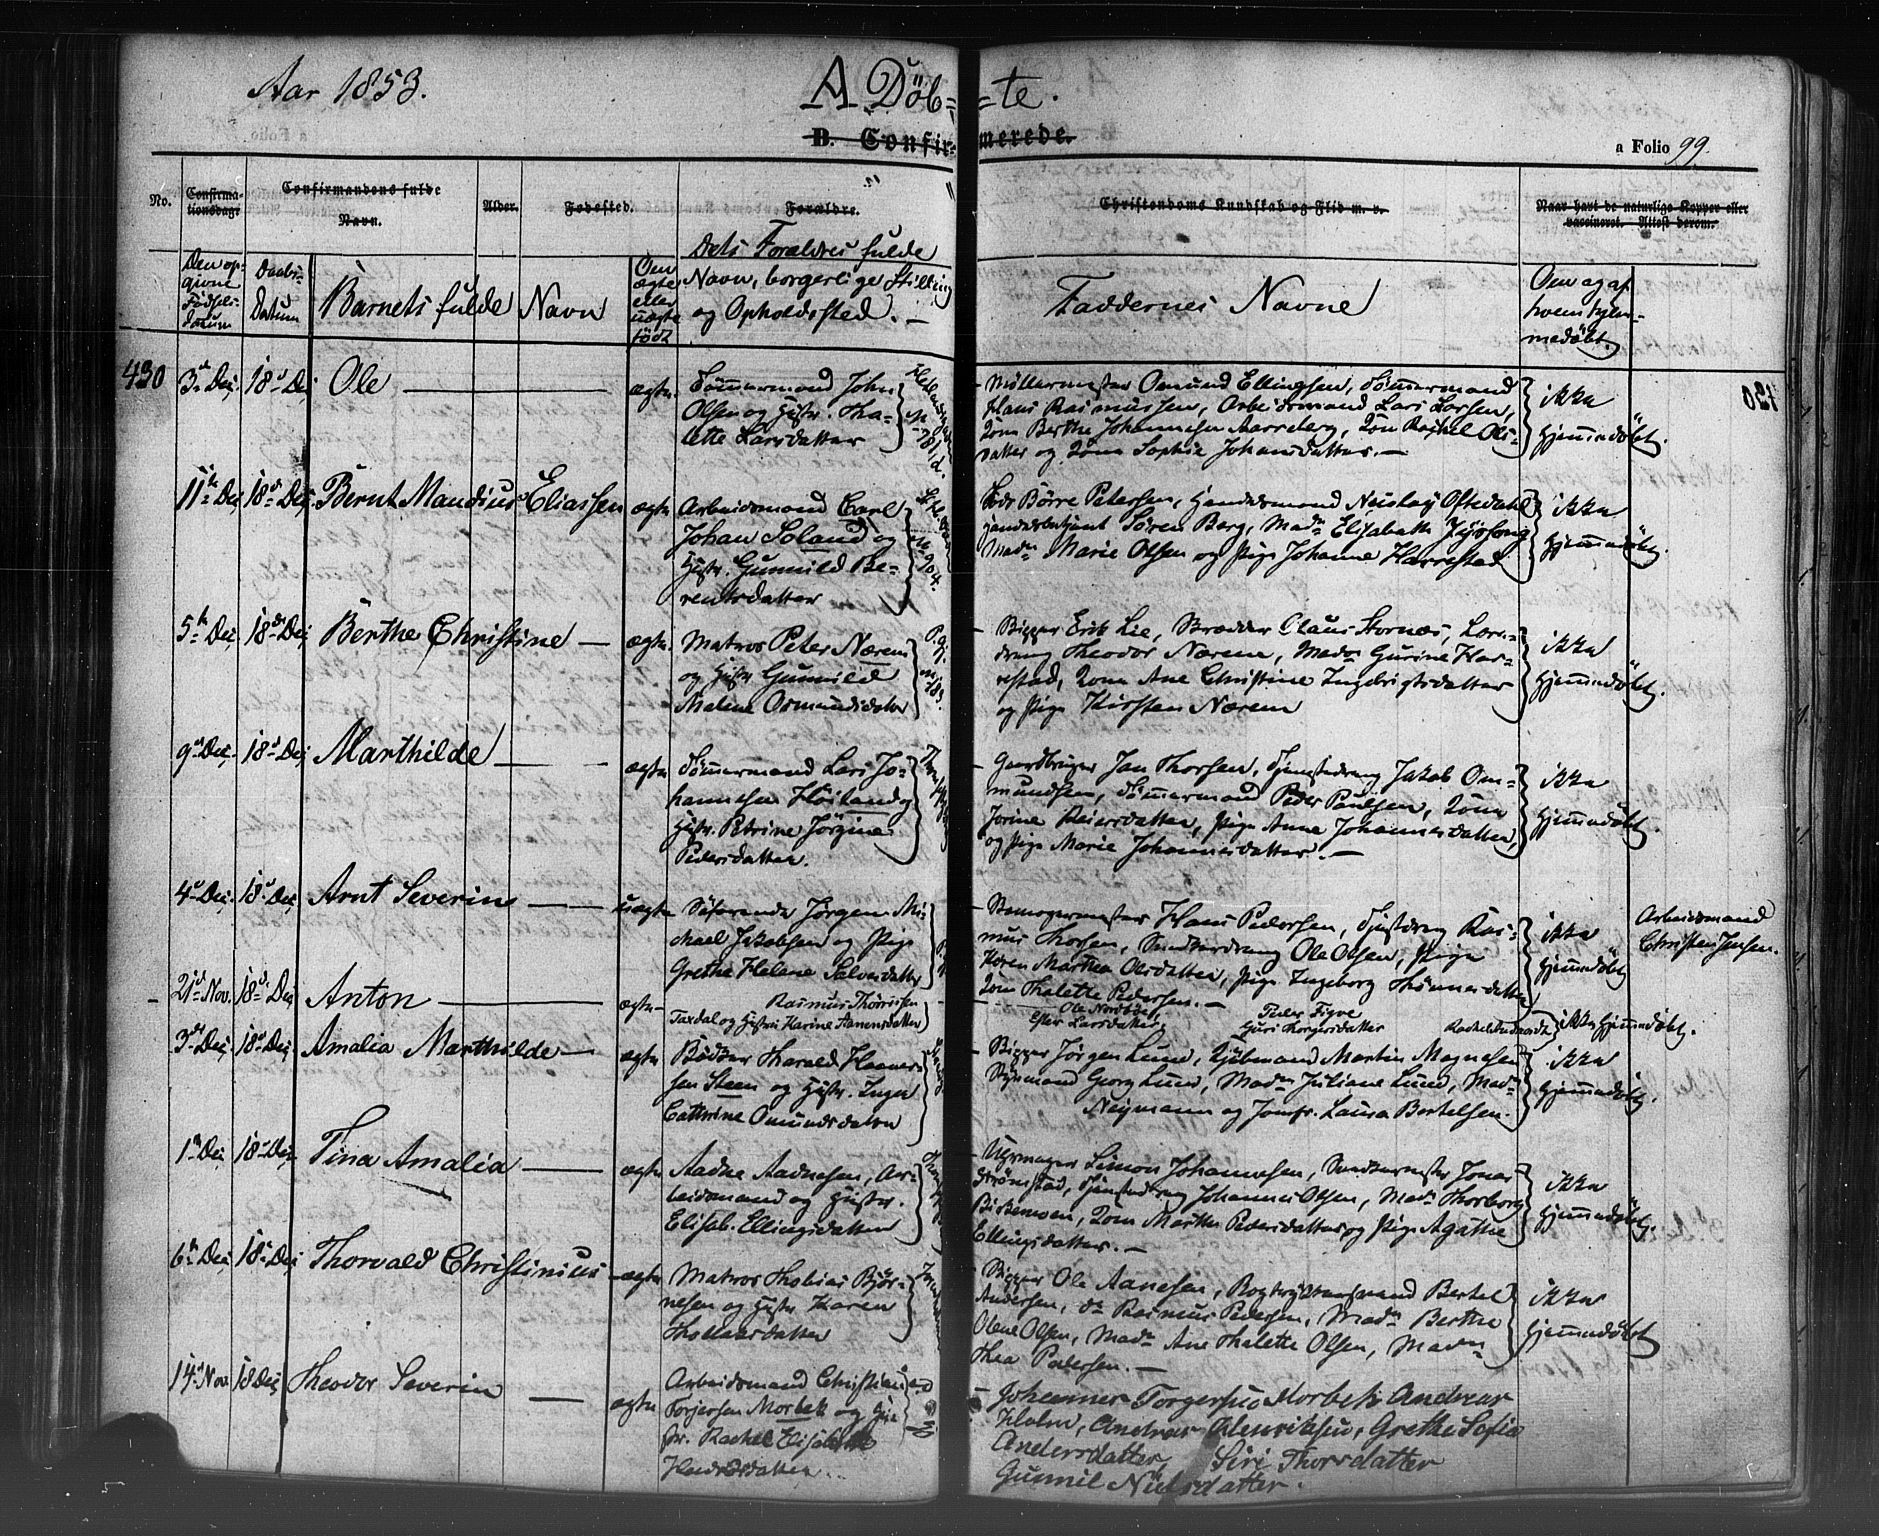 Aar 1853.
A Döb=
=te.
B. Confir=
merede.
a Folio 99.
No.
Confirma-
tionsdag.
Confirmandens fulde
Navn.
Alder.
Fødested.
Forældre.
Christendoms Kundskab og Flid m. v.
Naar havt de naturlige Kopper eller
vaccineret. Attest derom.
Den op-
givne
Födsels-
datum
Daabs-
Datum
Barnets fulde Navn
Om
ægte
eller
uægte
födt
Dets Forældres fulde
Navn, borgerlige Stilling
og Opholdssted. —
Faddernes Navne
Om og af
hvem hjem-
medöbt.
430
3d Dec. 18d Dec. Ole
ægte.
Tömmermand John
Olsen og Hustr. Tha-
lette Larsdatter
Möllermester Osmund Ellingsen, Tömmermand
Hans Rasmussen, Arbeidsmand Lars Larsen,
Kone Berthe Johannesen Aarreberg, Kon Rachel Ols-
datter og Kone Sophie Johansdatter. —
ikke
hjemmedöbt.
11te Dec. 18d Dec. Bernt Mandius Eliassen
ægte
Arbeidsmand Carl
Johan Soland og
Hustr. Gunnild Be-
rentsdatter
Börre Petersen, Handelsmand Oftedahl
Sören Berg, Madm Elisabeth
Madm Marie Olsen og Pige Johanne Harrestad
ikke
hjemmedöbt.
5te Dec. 18de Dec. Berthe Christine —
ægte.
Matros Peter Nærem
og Hustr Gunnild
Malene Osmundsdatter
Bigger Erik Lie, Bredder Claus Stornæs, Lære-
dreng Theodor Nærem, Madm Gurine Har-
restad, Kone Ane Christine Ingebrigtsdatter
og Pige Kirsten Nærem
ikke
hjemmedöbt.
9d Dec. 18d Dec. Marthilde
ægte
Tömmermand Lars Jo-
hannesen Höiland og
Hustr. Petrine Jörgine
Pedersdatter.
Gaardbruger Jan Thorsen, Tjenestedreng Jakob Om-
mundsen, Tömmermand Peder Paulsen, Kone
Jorine Reiersdatter, Pige Anne Johannesdatter,
og Pige Marie Johannesdatter. —
ikke
hjemmedöbt.
4d Dec. 18d Dec. Arnt Severin
uægte
Söfarende Jörgen Mi-
chael Jakobsen og Pige
Grethe Helene Salvesdatter
Skomagermester Hans Pedersen, Tjenstdreng Ras-
mus Thorsen, Snedkerdreng Ole Olsen, Pige
Karen Marthea Olsdatter, Pige Ingeborg Thönnesdatter
Kone Thalette Pedersen. —
ikke
hjemmedöbt
Arbeidsmand
Christen Jensen.
21d Nov. 18d Dec. Anton
ægte
Rasmus Thorrisen
Taxdal og Hustru Karine Aanensdatter
Ole Nordböe,
Peder Figve
Ester Larsdatter,
Guri Torgersdatter
ikke hjemmedöbt.
3die Dec. 18d Dec. Amalia Marthilde —
ægte
Bödker Harald Haaver-
sen Steen og Hustr. Inger
Cathrine Omundsdatter
Bigger Jörgen Lund, Kjöbmand Martin Magnesen
Styrmand Georg Lund, Madm Juliane Lund, Madm
Neijmann og Jomfr. Laura Bertelsen.
ikke
hjemmedöbt.
1te Dec. 18d Dec. Tina Amalia
ægte
Aadne Aadnesen, Ar-
beidsmand og Hustr.
Elisab. Ellingsdatter
Uhrmager Simon Johannesen, Snedkermester Jonas
Strömstad, Tjenstedreng Johannes Olsen, Madm Thorborg
Birkemoen, Kone Marthe Pedersdatter og Pige Agathe
Ellingsdatter. —
ikke
hjemmedöbt.
6te Dec. 18d Dec. Thorvald Christinius
ægte
Matros Thobias Björ-
nesen og Hustr Karen
Thollaksdatter
Bigger Ole Aanesen, Bogtrykkersvend Bertel
Andersen, do Rasmus Pedersen, Madm Berthe
Olene Olsen, Madm Ane Thalette Olsen, Madm
Thea Pedersen. —
ikke
hjemmedöbt
14d Nov. 18 Dec. Theodor Severin
ægte
Arbeidsmand Christian
Torjersen Morbek og Hu-
str. Rachel Elisabeth
Heidersdatter.
Johannes Torgersen Morbek Andreas
Holm, Andreas Henriksen, Grethe Sofia
Andersdatter, Siri Thorsdatter
Gunnil Nielsdatter.